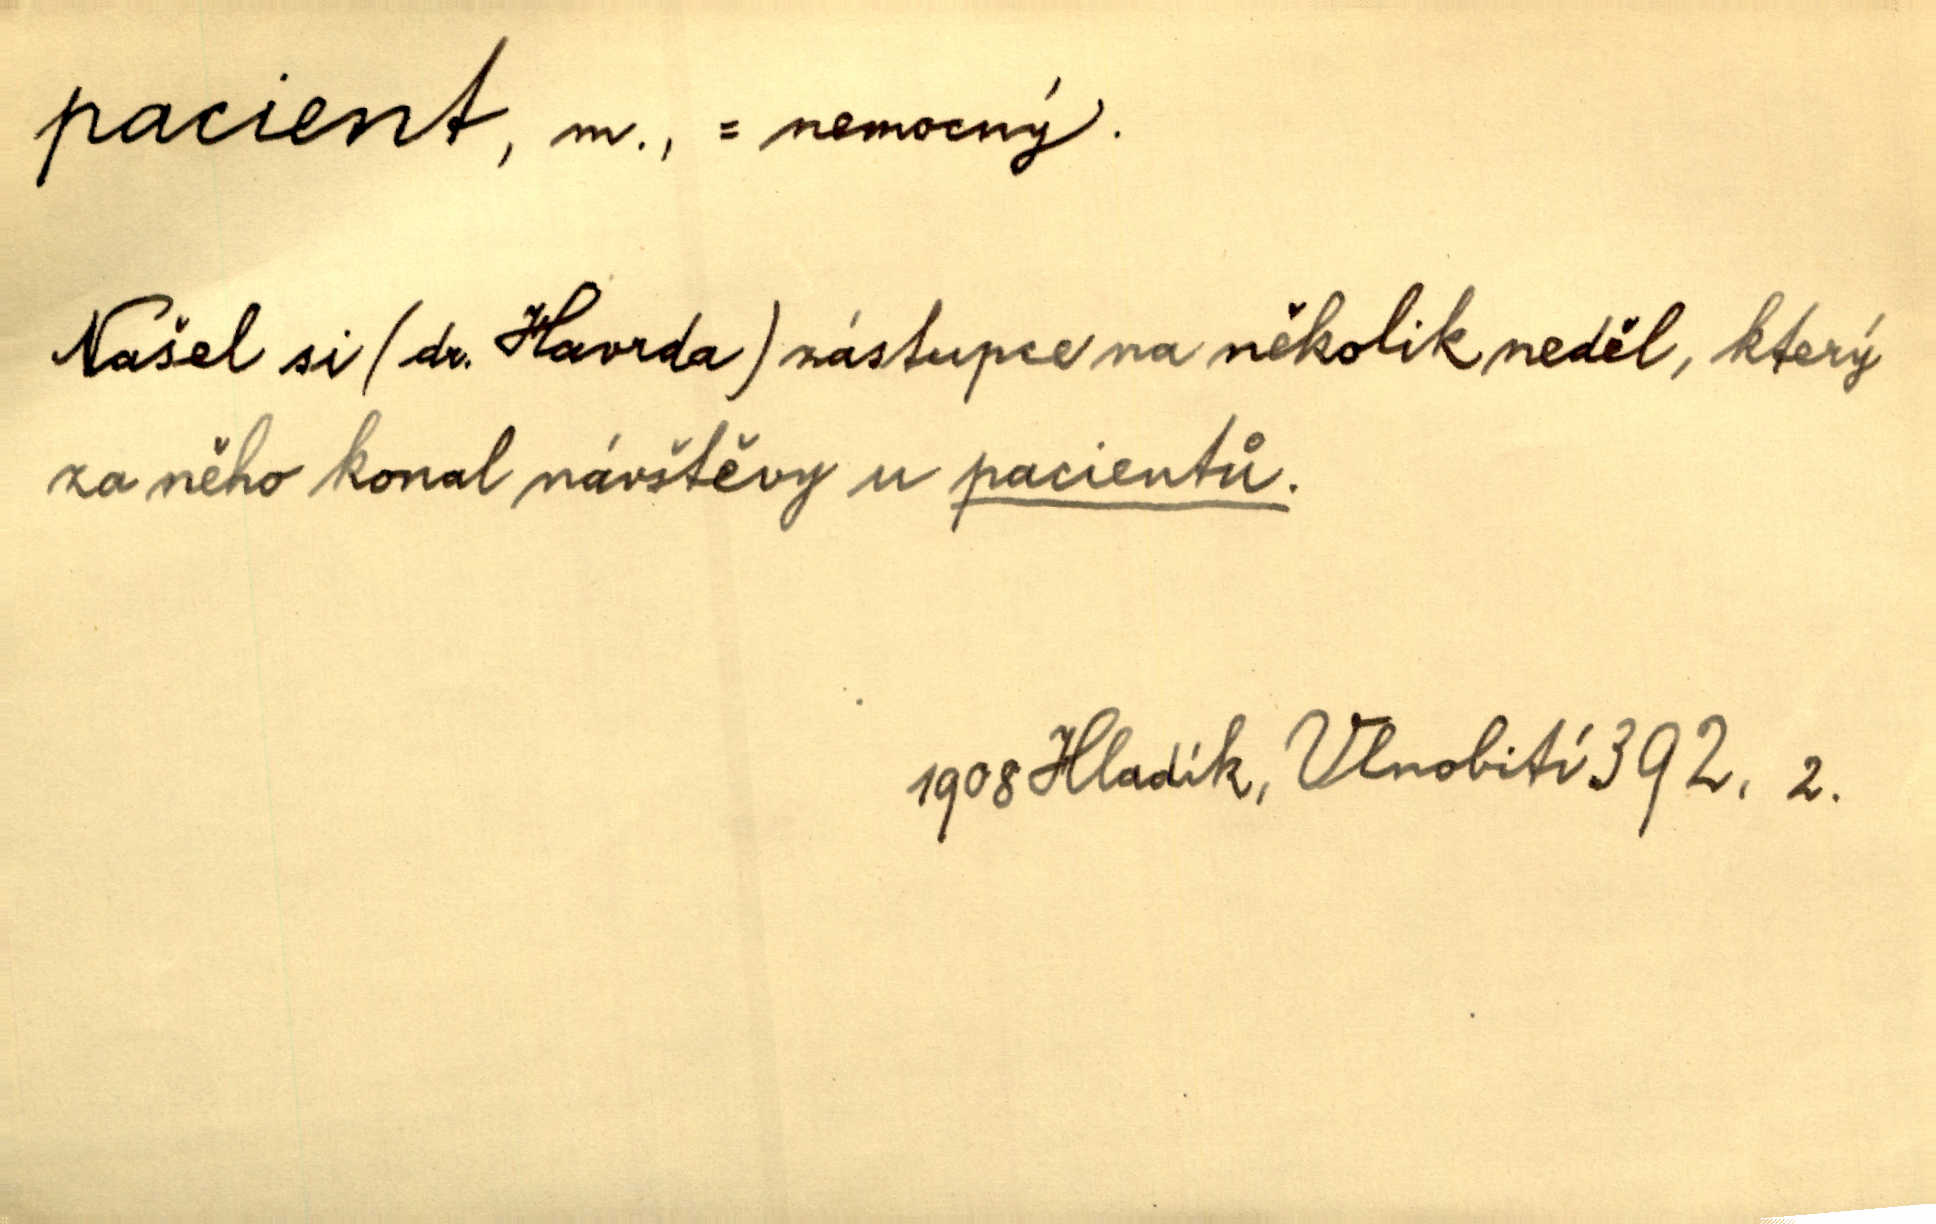 pacient, m., = nemocný.
Našel si (dr. Havrda) zástupce na několik neděl, který
za něho konal návštěvy u pacientů.
1908 Hladík, Vlnobití 392, 2.